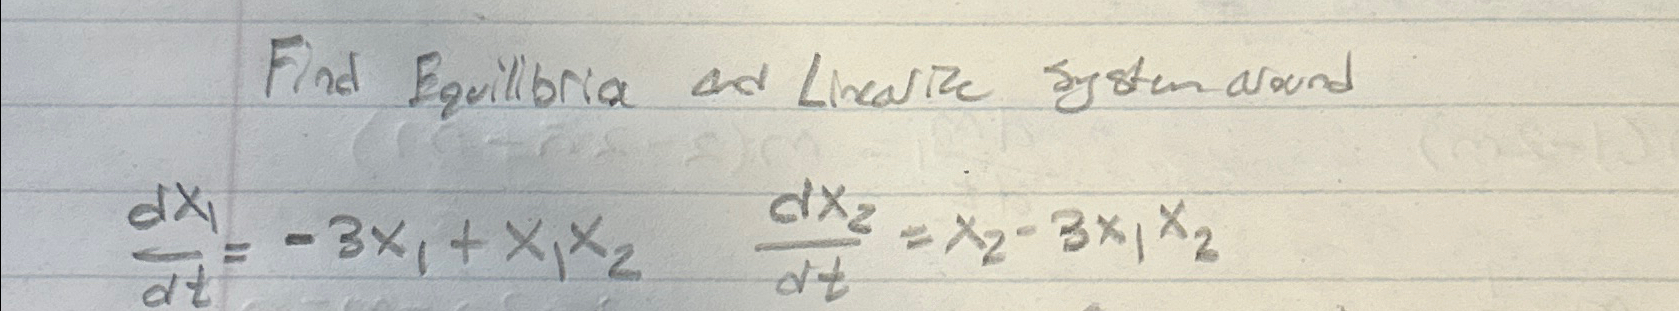 Find Equilibria and Linearize System around
dx₁/dt = -3x₁ + x₁x₂ dx₂/dt = x₂ - 3x₁x₂